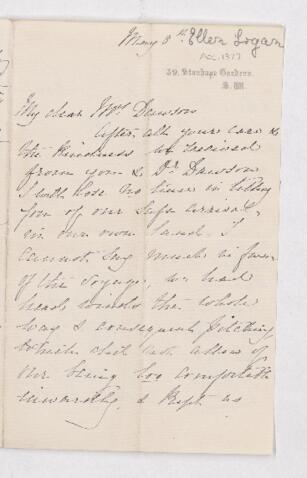 May 8th Ellen Logan
Acc. 1377
39, Stanhope Gardens.
S. W.
My dear Mrs Dawson
After all your care &
the kindness we received
from you & Dr Dawson
I will lose no time in telling
you of our safe arrival
in our own land. I
cannot say much in favor
of the voyage, we had
head winds the whole
way & consequent pitching
which did not allow of
our being too comfortable
inwardly, & kept us